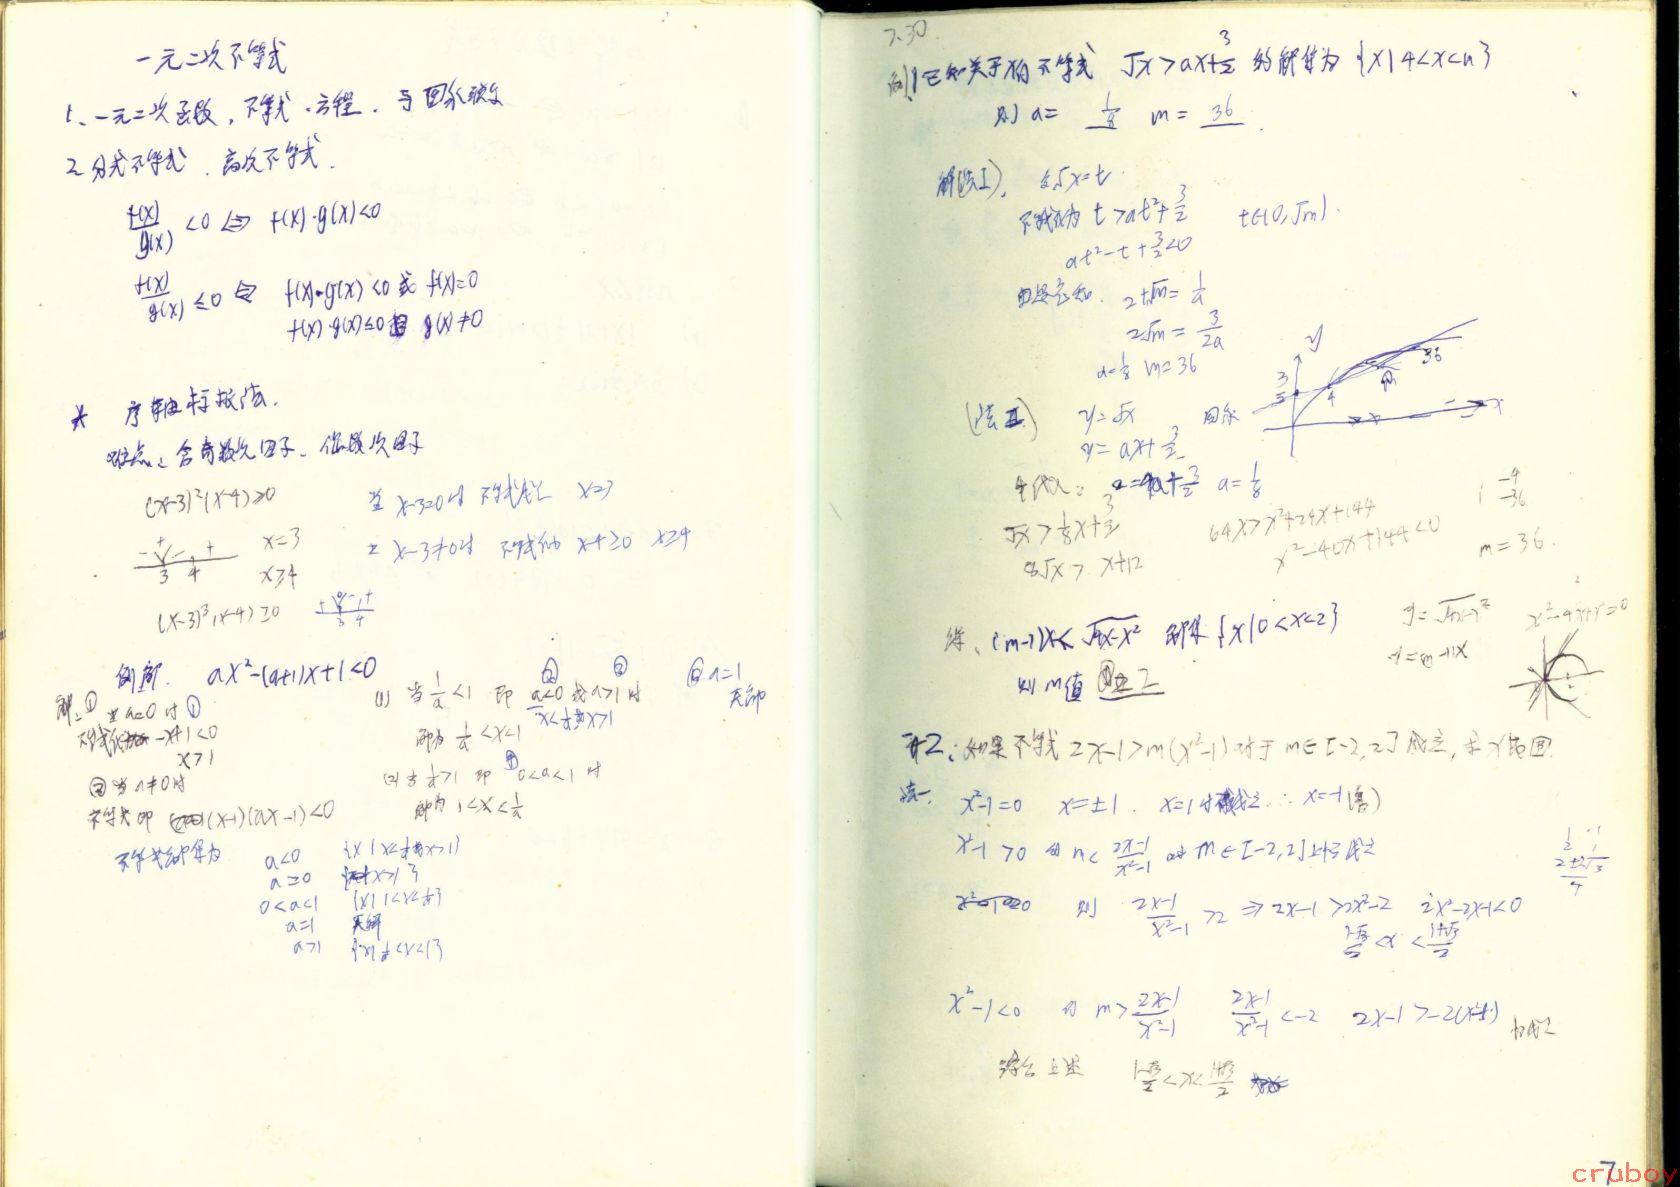 一元二次不等式
1、一元二次函数，不等式、方程，与图象联系
2、分式不等式、高次不等式.
f(x)/g(x) <0 ⇔ f(x)·g(x)<0
f(x)/g(x) ≤0 ⇔ f(x)·g(x)<0 或 f(x)=0
f(x)·g(x)≤0 且 g(x)≠0
* 序轴标根法.
难点：含奇数次因子、偶数次因子
(x-3)²(x-4)≥0
当 x-3=0时 不等式成立 x=3
- + - +
3 4
x=3
x≥4
x-3≠0时 不等式为 x-4≥0 x≥4
(x-3)³(x-4)≥0
+ - +
3 4
例 解 ax²-(a+1)x+1<0
解: ① 当a=0时 ①
不等式化为 -x+1<0
x>1
② 当 a≠0时
不等式即 (x-1)(ax-1)<0
(1) 当 1/a <1 即 a<0 或 a>1 时
② ③
x<1/a 或 x>1
解为 1/a <x<1
(2) 当 1/a >1 即 0<a<1 时
解为 1<x<1/a
a=1
无解
不等式解集为
a<0 {x|x<1/a或x>1}
a=0 {x|x>1}
0<a<1 {x|1<x<1/a}
a=1 无解
a>1 {x|1/a<x<1}
7.30.
例1 已知关于x的不等式 √x>ax+3/2 的解集为 {x|4<x<m}
则 a= 1/8 m= 36 .
解(法I), 令√x=t.
不等式为 t>at²+3/2 t∈(0,√m).
at²-t+3/2<0
由韦定知. 2+√m= 1/a
2√m= 3/2a
a=1/8 m=36
(法II) y=√x 图象
y=ax+3/2
y
3/2
4
m
36
x
4代入: 2=4a+3/2 a=1/8
√x>1/8x+3/2
8√x> x+12
64x>x²+24x+144
x²-40x+144<0
1 -4
-36
m=36.
练、(m-1)x<√(4x-x²) 解集{x|0<x<2}
则 m值 2
y=√(4x-x²)
y=(m-1)x
x²-4x+y²=0
例2:如果不等式 2x-1>m(x²-1)对于m∈[-2,2]成立，求x范围.
法一. x²-1=0 x=±1. x=1时成立 ∴ x=-1(舍)
x²-1>0 时 m< (2x-1)/(x²-1) 对 m∈[-2,2]上恒成立
则 (2x-1)/(x²-1) >2 ⇒ 2x-1>2x²-2 2x²-2x-1<0
(1-√3)/2 <x< (1+√3)/2
2±2√3/4
x²-1<0 时 m> (2x-1)/(x²-1) (2x-1)/(x²-1) <-2 2x-1>-2(x²-1)
综合上述 (1-√3)/2 <x< (1+√3)/2
7
cruboy